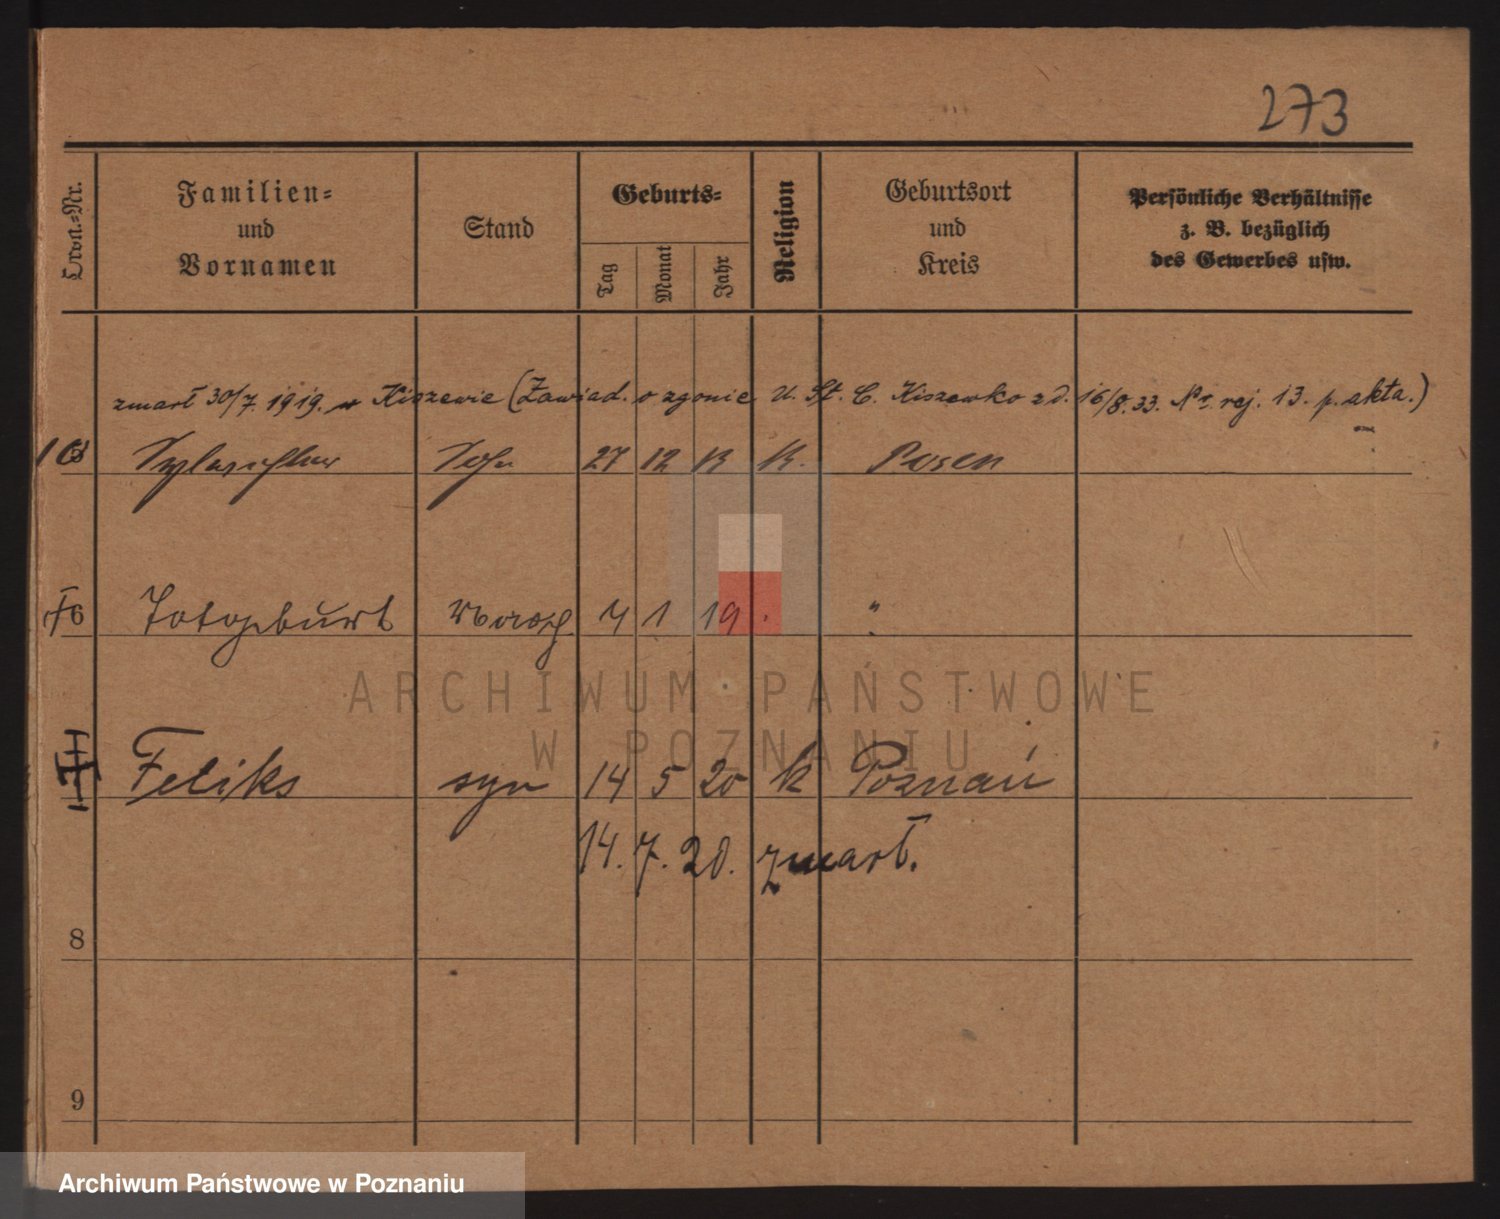 273
Ordn.-Nr.
Familien-
und
Vornamen
Stand
Geburts-
Tag
Monat
Jahr
Religion
Geburtsort
und
Kreis
Persönliche Verhältnisse
z. B. bezüglich
des Gewerbes usw.
zmarł 30/7. 1919. w Kiszewie (Zawiad. o zgonie U. St. C. Kiszewko z d. 16/8. 33. Nr. rej. 13. p. akta.)
27 12 K. Posen
6 Totgeburt 4 1 19 "
Feliks syn 14 5 20 k Poznań
14. 7. 20. zmarł.
8
9
ARCHIWUM PAŃSTWOWE
W POZNANIU
Archiwum Państwowe w Poznaniu